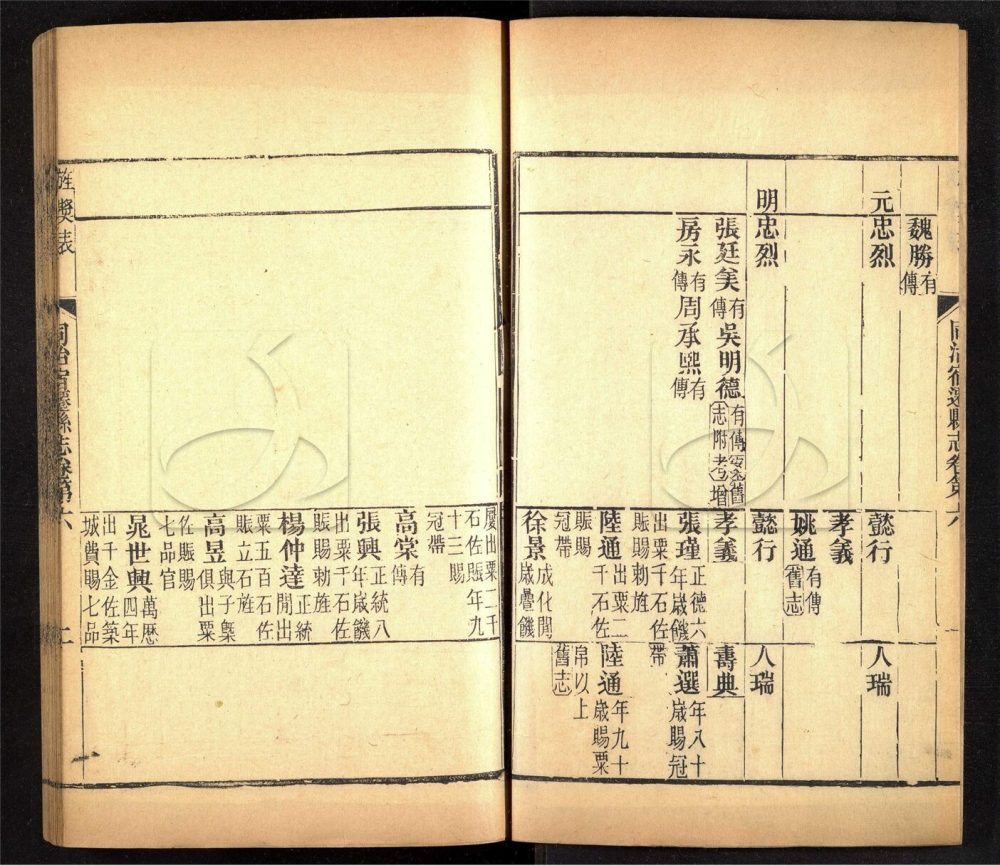 同治宿遷縣志卷第六
魏勝有傳
元忠烈
懿行
人瑞
孝義
姚通有傳舊志
明忠烈
懿行
人瑞
張廷美有傳
吳明德有傳
舊志附考增
孝義
壽典
房永有傳
周承熙有傳
張瑾正德六年歲饑
出粟千石佐
賑賜勅旌
蕭選年八十歲賜冠
帶
陸通出粟二千石佐
賑賜
冠帶
陸通年九十歲賜粟
帛以上
舊志
徐景成化間歲疊饑
屢出粟二千
石佐賑年九
十三賜
冠帶
高棠有傳
張興正統八年歲饑
出粟千石佐
賑賜勅旌
楊仲達正統間出
粟五百石佐
賑立石旌
高昱與子槩俱出粟
佐賑賜
七品官
晁世興萬歷四年
出千金佐築
城費賜七品
旌奬表
同治宿遷縣志卷第六
二